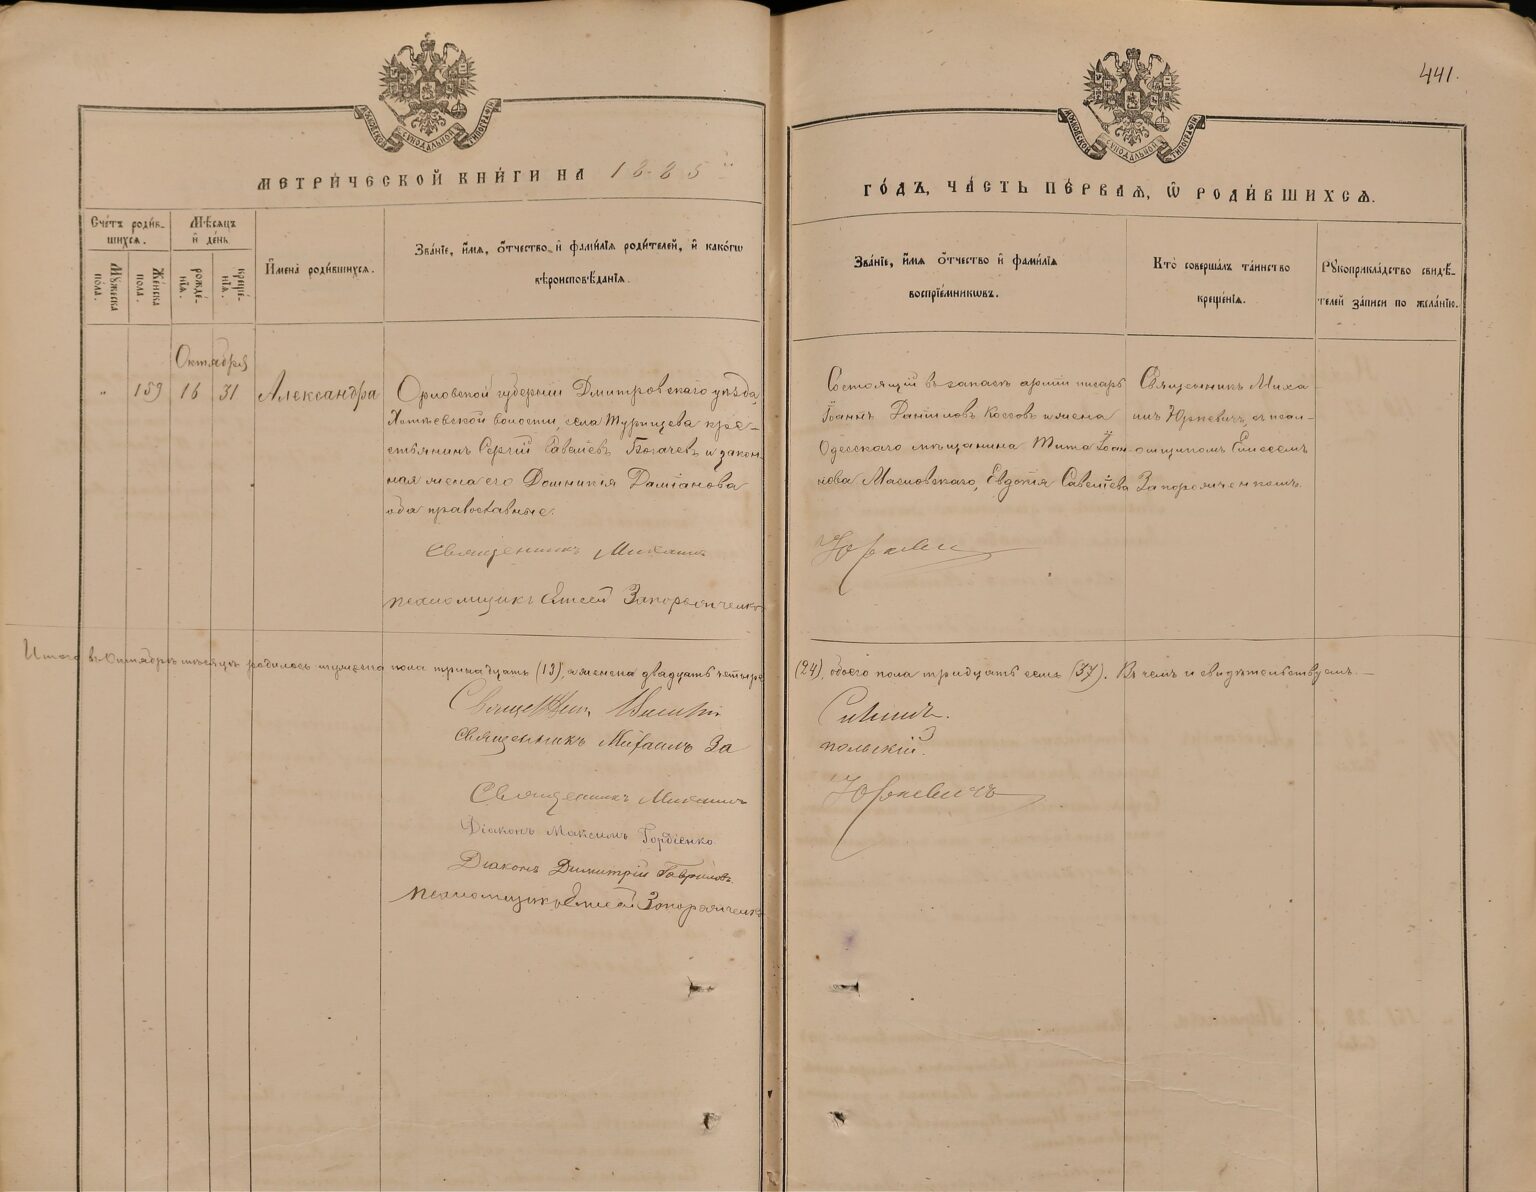 441.
МОСКОВСКОЙ СѴНОДАЛЬНОЙ ТИПОГРАФІИ
МОСКОВСКОЙ СѴНОДАЛЬНОЙ ТИПОГРАФІИ
МЕТРИ́ЧЕСКОЙ КНИ́ГИ НА 1885й
ГО́ДЪ, ЧА́СТЬ ПЕ́РВАѦ, Ѿ РОДИ́ВШИХСѦ.
Сче́тъ роди́в-
шихсѧ.
Му́жеска
по́ла.
Же́нска
пола.
Мѣ́сѧцъ
и҆ де́нь
рожде́-
нїѧ.
креще́-
нїѧ.
И҆мена̀ роди́вшихсѧ.
Зва́нїе, и҆́мѧ, ѻ҆́тчество, и҆ фами́лїѧ роди́телей, и҆ како́гѡ
вѣроисповѣ́данїѧ.
Зва́нїе, и҆́мѧ ѻ҆́тчество и҆ фами́лїѧ
воспрїе́мникѡвъ.
Кто̀ соверша́лъ та́инство
креще́нїѧ.
Рꙋкоприкла́дство свидѣ́-
телей за́писи по жела́нїю.
Октября
" 159 16 31 Александра
Орловской губерніи Дмитровскаго уѣзда,
Хотьевской волости, села Турищева кре-
стьянинъ Сергій Савеліевъ Богачевъ и закон-
ная жена его Домникія Даміанова
оба православные.
Священникъ Михаилъ
псаломщикъ Елисей Запорожченко
Состоящій въ запасѣ арміи писарь
Іоаннъ Даниловъ Коссовъ и жена
Одесскаго мѣщанина Тита Іоан-
нова Масловскаго, Евдокія Савеліева
Юркевич
Священникъ Миха-
илъ Юркевичъ, съ псал-
омщикомъ Елисеемъ
Запорожченкомъ.
Итого въ Октябрѣ мѣсяцѣ родилось мужеска пола тринадцать (13), а женска двадцать четыре
(24), обоего пола тридцать семь (37). Въ чемъ и свидѣтельствуемъ. —
Священникъ
Священникъ Михаилъ За
польскій.
Священникъ Михаилъ
Юркевичъ
Діаконъ Максимъ Гордіенко
Діаконъ Димитрій Гавриловъ.
Псаломщикъ Елисей Запорожченко